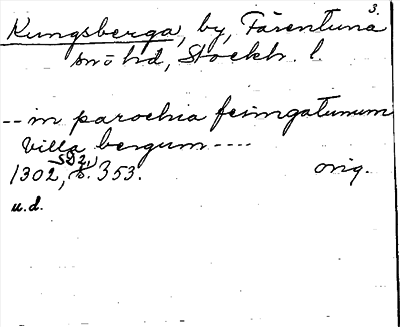 3.
Kungsberga, by, Färentuna
snö hd, Stockh. l.
-- in parochia feringatunum
villa bergum ----
SD 2,
1302, s. 353. orig.
u.d.